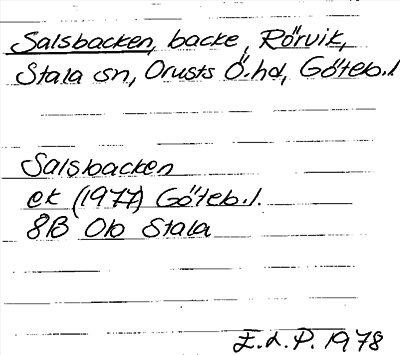 Salsbacken, backe, Rörvik,
Stala sn, Orusts Ö. hd, Göteb. l
Salsbacken
ek (1977) Göteb. l.
8B 0b Stala
E. L. P. 1978